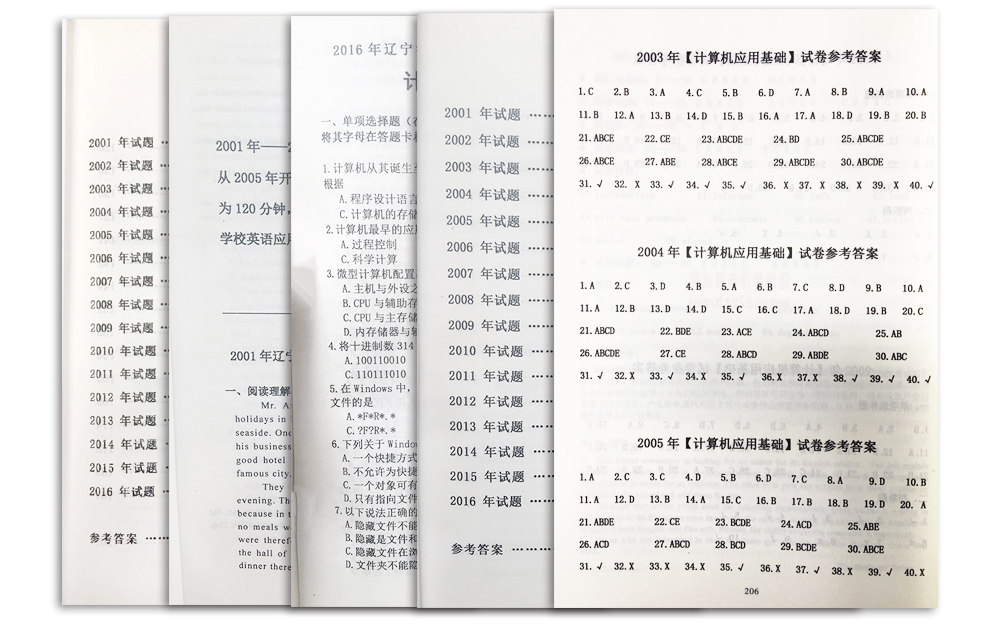 2001 年试题
2002 年试题
2003 年试题
2004 年试题
2005 年试题
2006 年试题
2007 年试题
2008 年试题
2009 年试题
2010 年试题
2011 年试题
2012 年试题
2013 年试题
2014 年试题
2015 年试题
2016 年试题
参考答案
2001 年——
从 2005 年开
为 120 分钟,
学校英语应
2001 年辽
一、阅读理解
Mr. A
holidays in
seaside. One
his business
good hotel
famous city.
They
evening. Th
because in t
no meals w
were theref
the hall of
dinner there
2016 年辽宁
计
一、单项选择题(在
将其字母在答题卡
1.计算机从其诞生至
根据
A.程序设计语言
C.计算机的存储
2.计算机最早的应
A.过程控制
C.科学计算
3.微型计算机配置
A.主机与外设之
B.CPU 与辅助存
C.CPU 与主存储
D.内存储器与
4.将十进制数 314
A.100110010
C.110111010
5.在 Windows 中,
文件的是
A.*F*R*.*
C.?F?R*.*
6.下列关于 Windo
A.一个快捷方式
B.不允许为快捷
C.一个对象可有
D.只有指向文件
7.以下说法正确的
A.隐藏文件不能
B.隐藏是文件和
C.隐藏文件在浏
D.文件夹不能隐
2001 年试题
2002 年试题
2003 年试题
2004 年试题
2005 年试题
2006 年试题
2007 年试题
2008 年试题
2009 年试题
2010 年试题
2011 年试题
2012 年试题
2013 年试题
2014 年试题
2015 年试题
2016 年试题
参考答案
2003 年【计算机应用基础】试卷参考答案
1.C 2.B 3.A 4.C 5.B 6.D 7.A 8.B 9.A 10.A
11.B 12.A 13.B 14.D 15.B 16.A 17.A 18.D 19.B 20.B
21.ABCE 22.CE 23.ABCDE 24.BD 25.ABCDE
26.ABCE 27.ABE 28.ABCE 29.ABCDE 30.ABCDE
31.√ 32.X 33.√ 34.√ 35.√ 36.X 37.X 38.X 39.X 40.√
2004 年【计算机应用基础】试卷参考答案
1.A 2.C 3.D 4.B 5.A 6.B 7.C 8.D 9.B 10.A
11.A 12.B 13.D 14.D 15.C 16.C 17.A 18.D 19.B 20.C
21.ABCD 22.BDE 23.ACE 24.ABCD 25.AB
26.ABCDE 27.CE 28.ABCD 29.ABDE 30.ABC
31.√ 32.X 33.√ 34.X 35.√ 36.X 37.X 38.√ 39.√ 40.√
2005 年【计算机应用基础】试卷参考答案
1.A 2.C 3.C 4.D 5.B 6.D 7.C 8.A 9.D 10.B
11.A 12.D 13.B 14.A 15.C 16.B 17.B 18.B 19.D 20. A
21.ABDE 22.CE 23.BCDE 24.ACD 25.ABE
26.ACD 27.ABCD 28.BCD 29.BCDE 30.ABCE
31.√ 32.X 33.X 34.X 35.√ 36.X 37.√ 38.X 39.√ 40.X
206